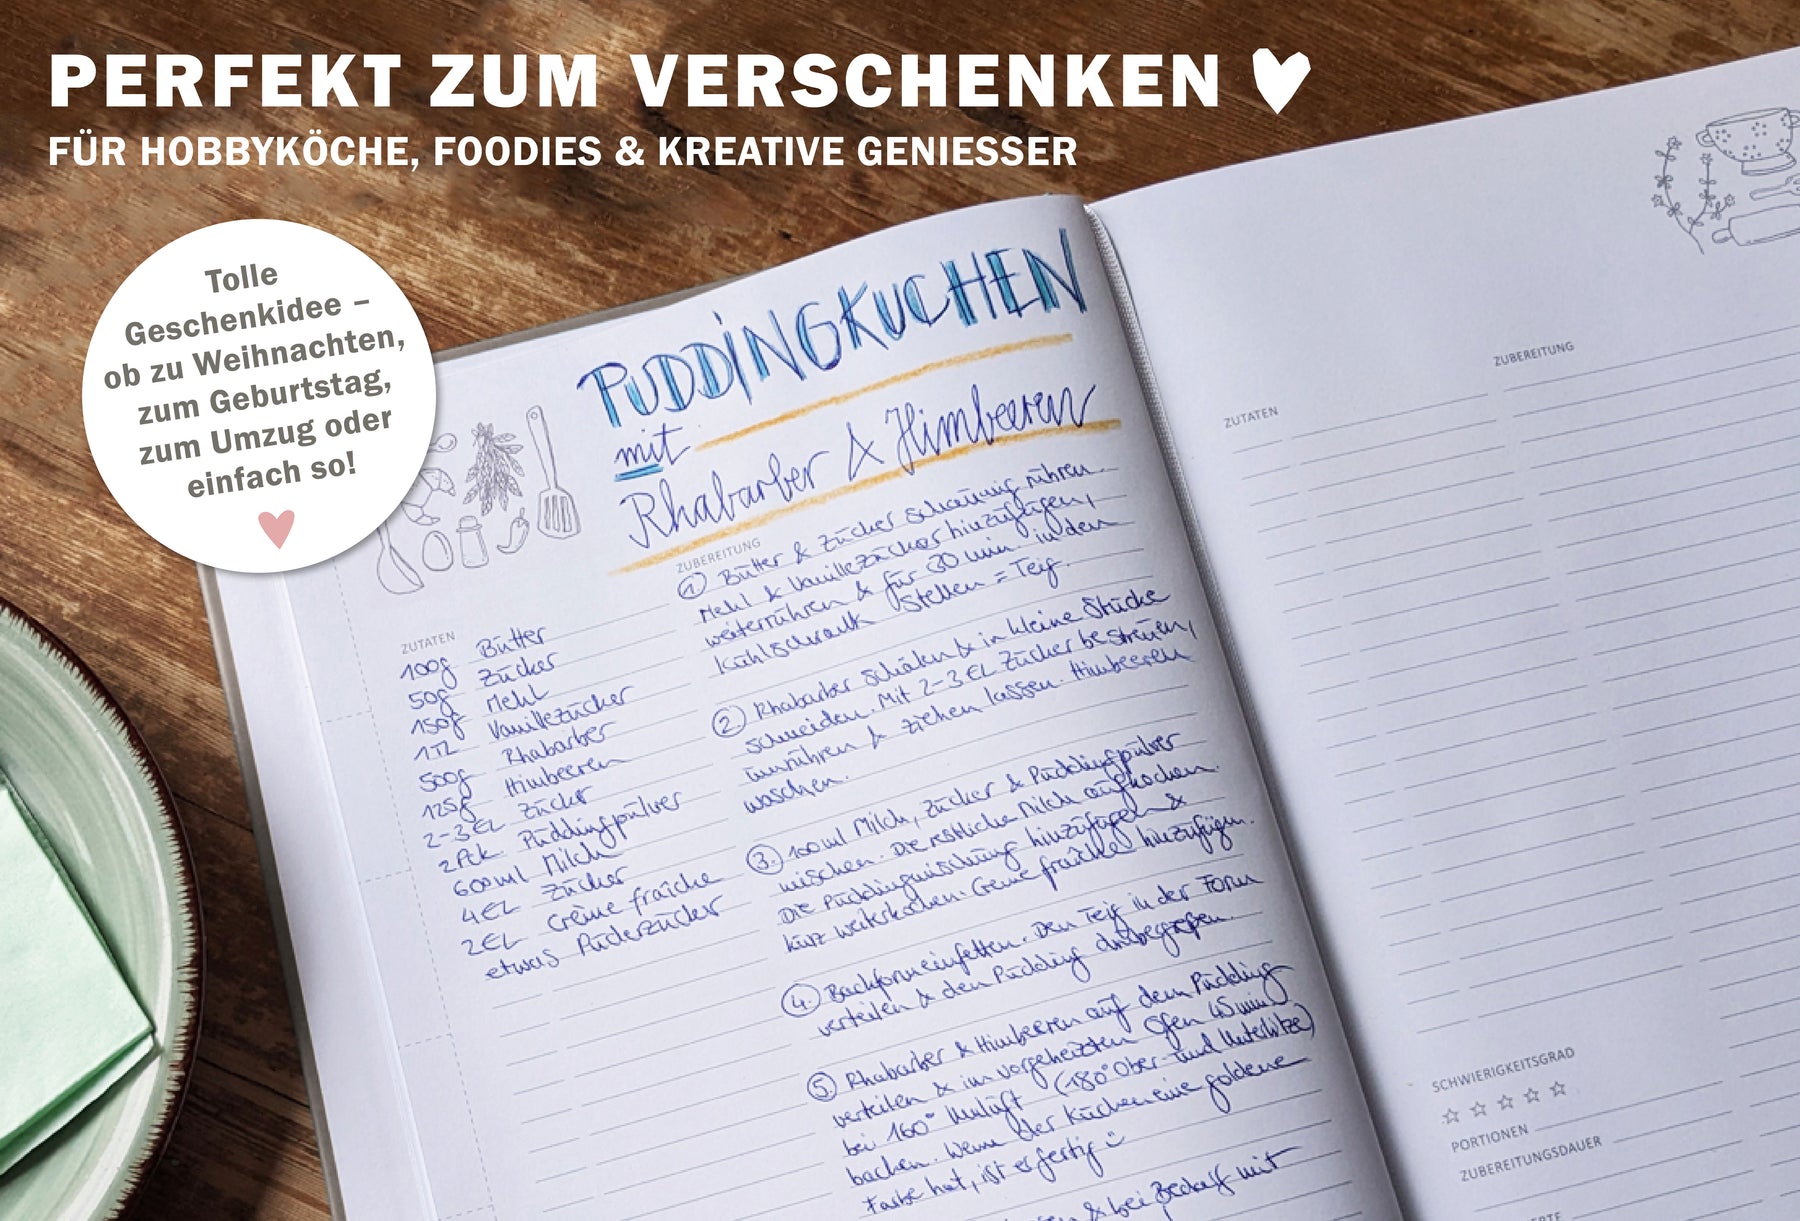 PERFEKT ZUM VERSCHENKEN
FÜR HOBBYKÖCHE, FOODIES & KREATIVE GENIESSER
Tolle
Geschenkidee –
ob zu Weihnachten,
zum Geburtstag,
zum Umzug oder
einfach so!
PUDDINGKUCHEN
mit
Rhabarber & Himbeeren
ZUTATEN
100g Butter
50g Zucker
150g Mehl
1TL Vanillezucker
500g Rhabarber
125g Himbeeren
2-3 EL Zucker
2Pck. Puddingpulver
600ml Milch
4EL Zucker
2EL Crème fraîche
etwas Puderzucker
ZUBEREITUNG
① Butter & Zucker schaumig rühren.
Mehl & Vanillezucker hinzufügen,
weiterrühren & für 30 min in den
Kühlschrank stellen = Teig.
② Rhabarber schälen & in kleine Stücke
schneiden. Mit 2-3 EL Zucker bestreuen,
umrühren & ziehen lassen. Himbeeren
waschen.
③. 100ml Milch, Zucker & Puddingpulver
mischen. Die restliche Milch aufkochen.
Die Puddingmischung hinzufügen &
kurz weiterkochen. Creme fraîche hinzufügen.
④. Backform einfetten. Den Teig in der Form
verteilen & den Pudding drübergießen.
⑤ Rhabarber & Himbeeren auf dem Pudding
verteilen & im vorgeheizten Ofen 45 min
bei 160° Umluft (180° Ober- und Unterhitze)
backen. Wenn der Kuchen eine goldene
Farbe hat, ist er fertig
& bei Bedarf mit
ZUTATEN
ZUBEREITUNG
SCHWIERIGKEITSGRAD
PORTIONEN
ZUBEREITUNGSDAUER